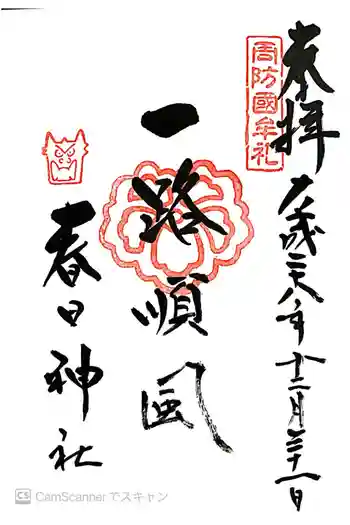 奉拝
周防國牟礼
平成二十八年十二月三十一日
一路順風
春日神社
CS CamScanner でスキャン